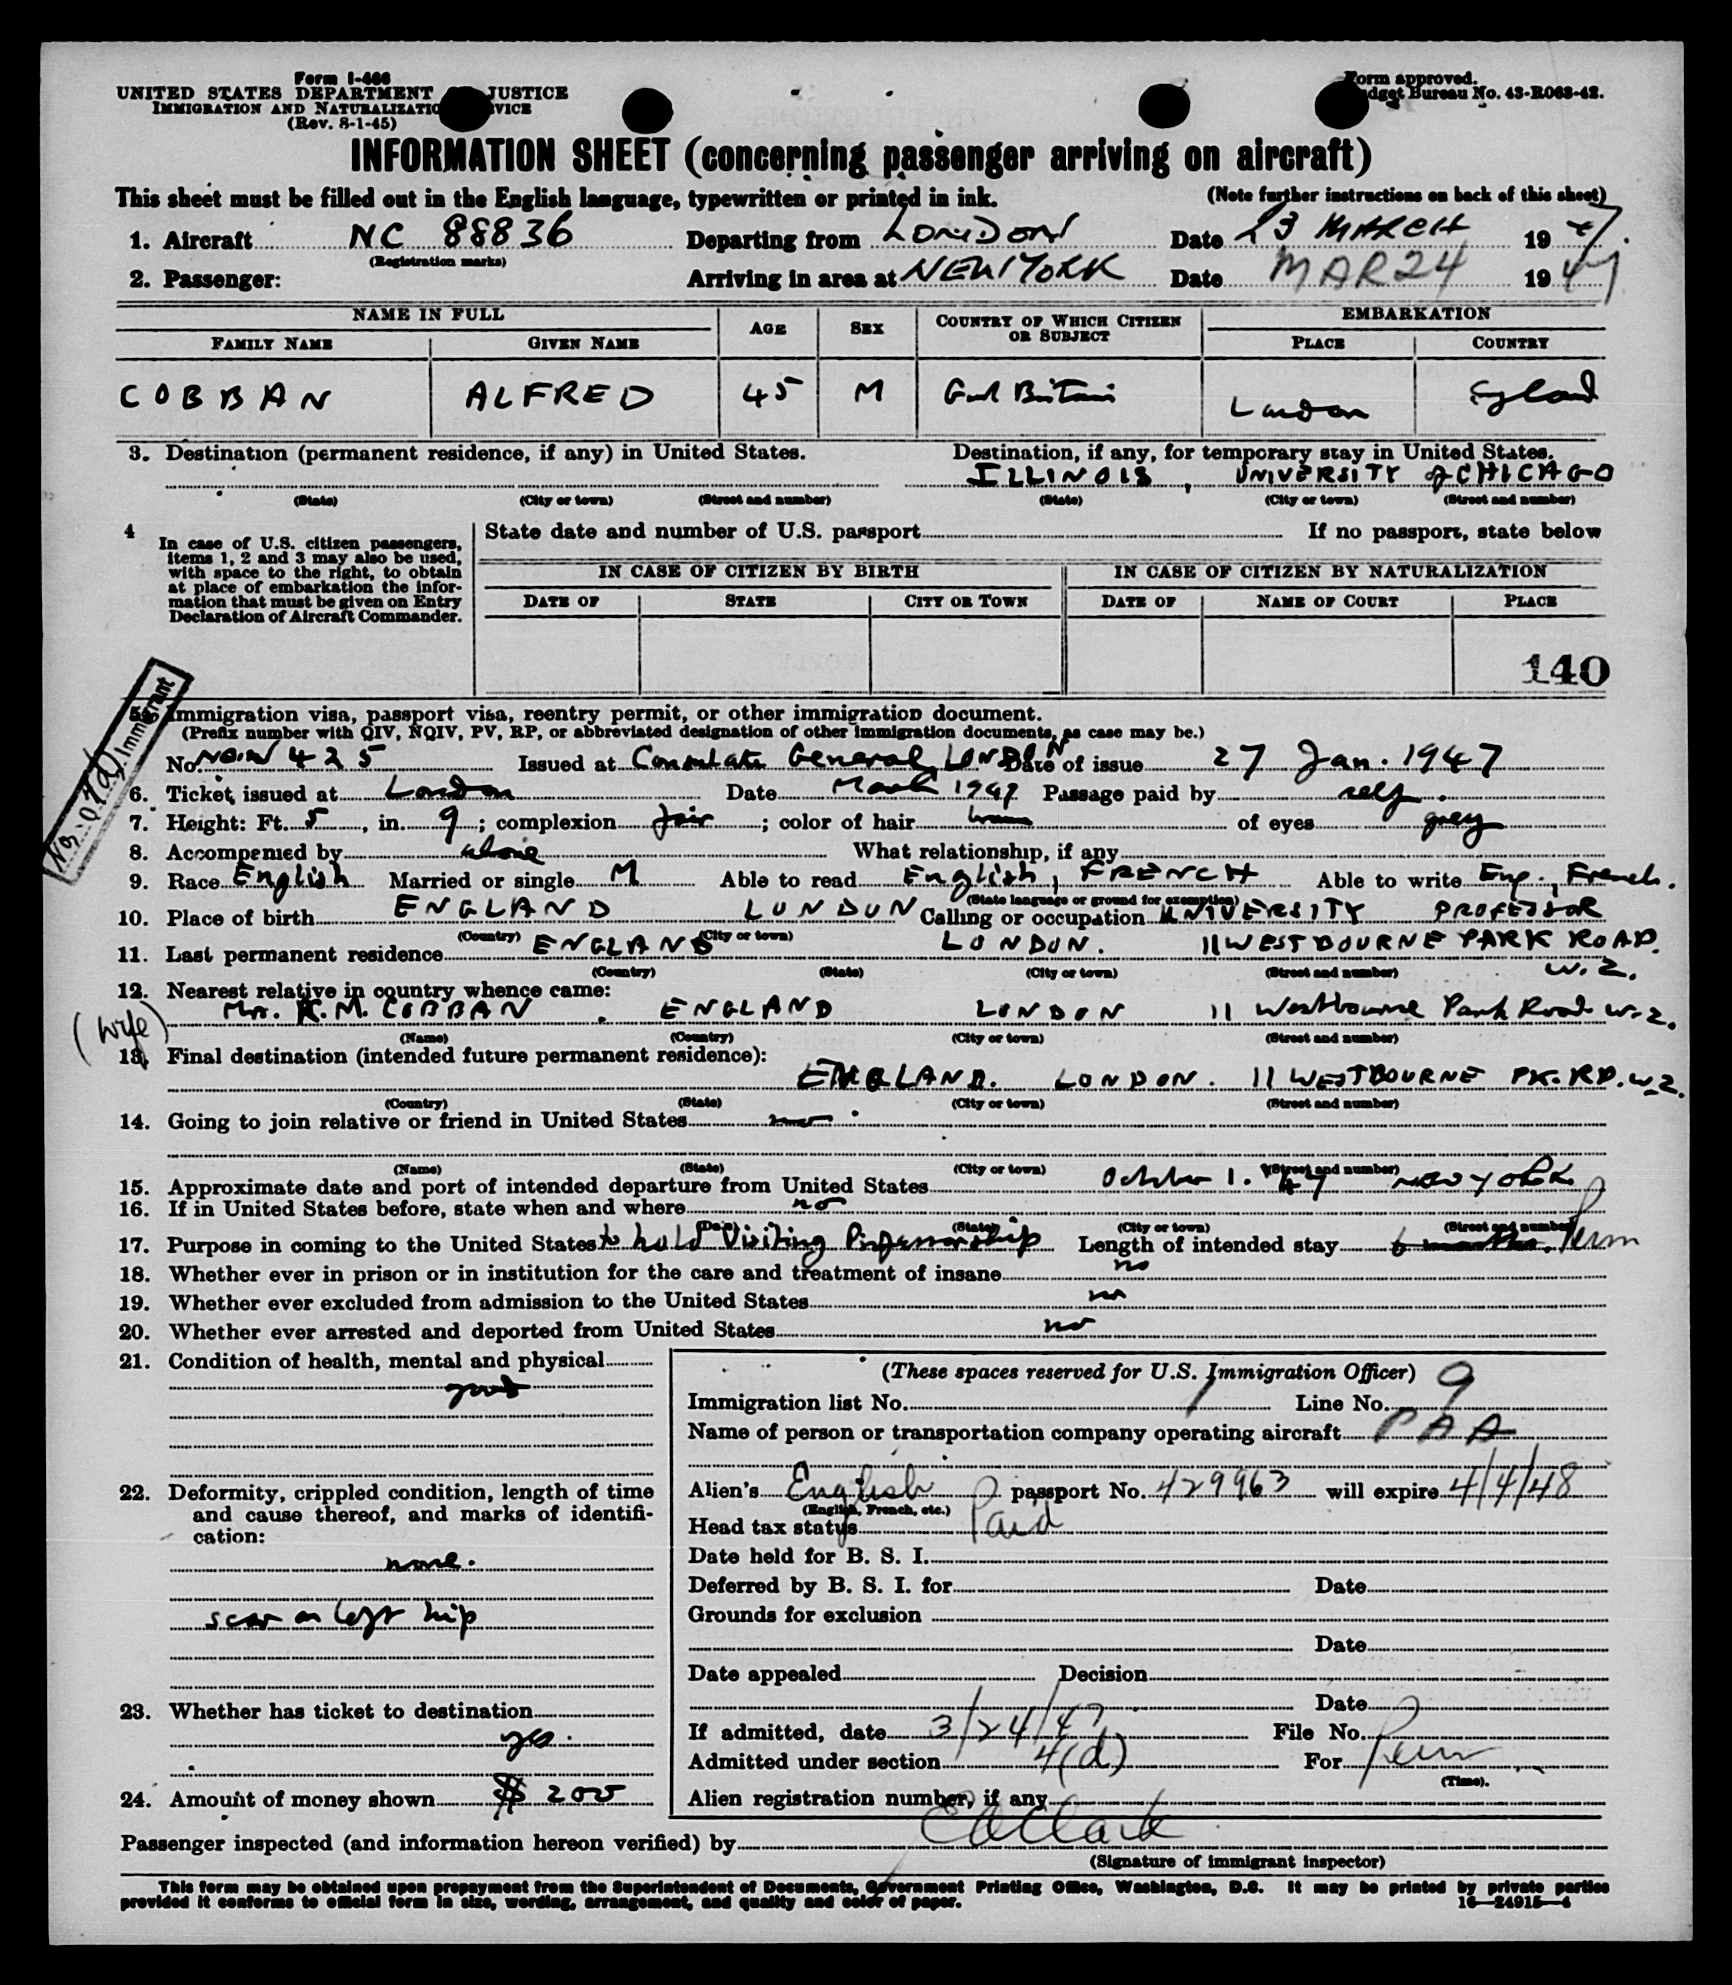 Form I-466
UNITED STATES DEPARTMENT JUSTICE
IMMIGRATION AND NATURALIZATIO VICE
(Rev. 8-1-45)
Form approved.
dget Bureau No. 43-R063-42.
INFORMATION SHEET (concerning passenger arriving on aircraft)
This sheet must be filled out in the English language, typewritten or printed in ink.
(Note further instructions on back of this sheet)
1. Aircraft NC 88836 Departing from LONDON Date 23 MARCH 19 47.
(Registration marks)
2. Passenger: Arriving in area at NEW YORK Date MAR 24 19 47
NAME IN FULL AGE SEX COUNTRY OF WHICH CITIZEN OR SUBJECT EMBARKATION
FAMILY NAME GIVEN NAME PLACE COUNTRY
COBBAN ALFRED 45 M Britain London England
3. Destination (permanent residence, if any) in United States. Destination, if any, for temporary stay in United States.
ILLINOIS, UNIVERSITY of CHICAGO
(State) (City or town) (Street and number) (State) (City or town) (Street and number)
4 In case of U.S. citizen passengers, items 1, 2 and 3 may also be used, with space to the right, to obtain at place of embarkation the information that must be given on Entry Declaration of Aircraft Commander.
State date and number of U.S. passport If no passport, state below
IN CASE OF CITIZEN BY BIRTH IN CASE OF CITIZEN BY NATURALIZATION
DATE OF STATE CITY OR TOWN DATE OF NAME OF COURT PLACE
140
Immigrant
5. Immigration visa, passport visa, reentry permit, or other immigration document.
(Prefix number with QIV, NQIV, PV, RP, or abbreviated designation of other immigration documents, as case may be.)
No. 425 Issued at Consulate General LONDON Date of issue 27 Jan. 1947
6. Ticket issued at London Date March 1947 Passage paid by self.
7. Height: Ft. 5, in. 9; complexion fair; color of hair brown of eyes grey
8. Accompanied by alone What relationship, if any
9. Race English Married or single M Able to read English, FRENCH Able to write Eng., French.
(State language or ground for exemption)
10. Place of birth ENGLAND LONDON Calling or occupation UNIVERSITY PROFESSOR
(Country) (City or town)
11. Last permanent residence ENGLAND LONDON. 11 WESTBOURNE PARK ROAD. W.2.
(Country) (State) (City or town) (Street and number)
12. Nearest relative in country whence came:
(Wife) Mrs. K.M. COBBAN. ENGLAND LONDON 11 Westbourne Park Road W.2.
(Name) (Country) (City or town) (Street and number)
13. Final destination (intended future permanent residence):
ENGLAND. LONDON. 11 WESTBOURNE PK. RD. W.2.
(Country) (State) (City or town) (Street and number)
14. Going to join relative or friend in United States no.
(Name) (State) (City or town) (Street and number)
15. Approximate date and port of intended departure from United States October 1. 47 NEW YORK
16. If in United States before, state when and where no
(Date) (State) (City or town) (Street and number)
17. Purpose in coming to the United States to hold Visiting Professorship Length of intended stay 6 months. Perm
18. Whether ever in prison or in institution for the care and treatment of insane no
19. Whether ever excluded from admission to the United States no
20. Whether ever arrested and deported from United States no
21. Condition of health, mental and physical
good
22. Deformity, crippled condition, length of time and cause thereof, and marks of identification:
none.
scar on left hip
23. Whether has ticket to destination
yes.
24. Amount of money shown $ 200
(These spaces reserved for U.S. Immigration Officer)
Immigration list No. 1 Line No. 9
Name of person or transportation company operating aircraft PAA
Alien's English passport No. 429963 will expire 4/4/48
(English, French, etc.)
Head tax status Paid
Date held for B. S. I.
Deferred by B. S. I. for Date
Grounds for exclusion
Date
Date appealed Decision
Date
If admitted, date 3/24/47 File No.
Admitted under section 4(d) For Perm
(Time).
Alien registration number, if any
Passenger inspected (and information hereon verified) by Ed Clark
(Signature of immigrant inspector)
This form may be obtained upon prepayment from the Superintendent of Documents, Government Printing Office, Washington, D.C. It may be printed by private parties
provided it conforms to official form in size, wording, arrangement, and quality and color of paper. 16—24915—4